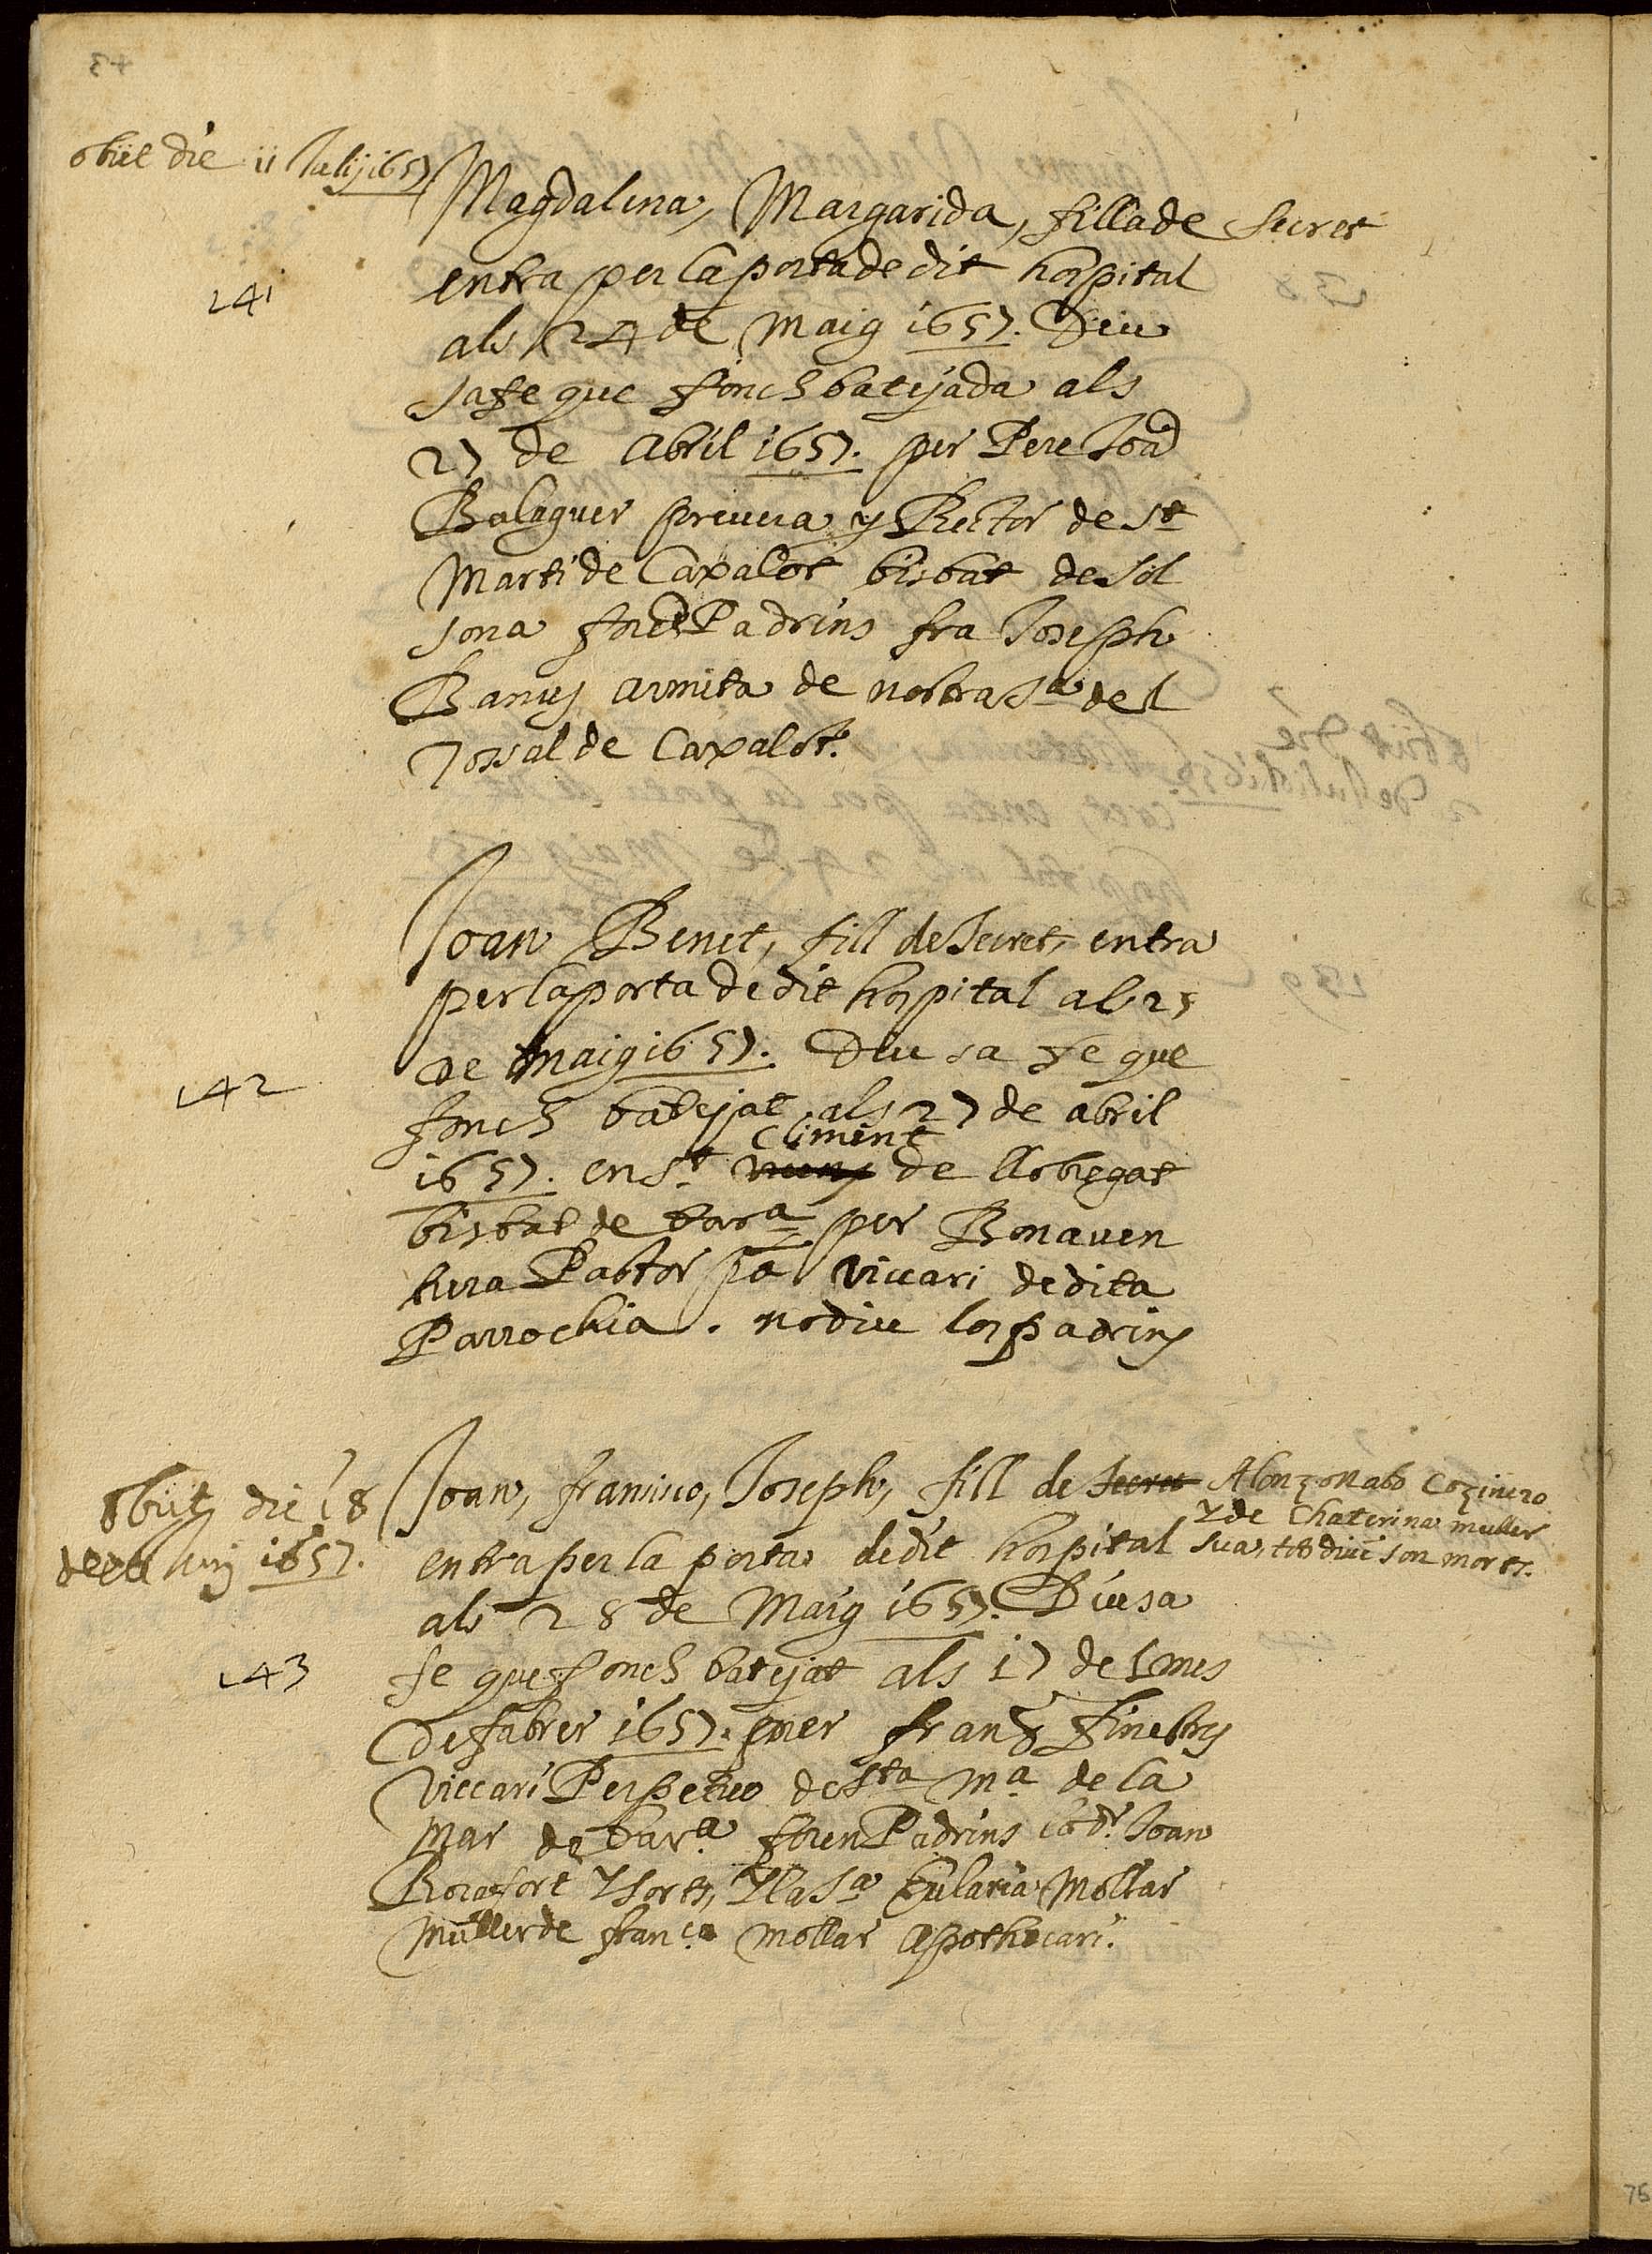 obiit die ii Julij 1657
Magdalena, Margarida, filla de secret
141
entra per la porta de dit hospital
als 24 de Maig 1657. Diu
sa fe que fonch batejada als
27 de Abril 1657. per Pere Joā
Balaguer prevera y Rector de St
Marti de Caxalot bisbat de Sol
sona foren Padrins fra Joseph
Banus armita de nostra Sª del
Tossal de Caxalot.
Joan Benet, fill de secret, entra
per la porta de dit hospital als 25
de Maig 1657. Diu sa fe que
142
fonch batejat als 27 de abril
Climent
1657. en St. de llobregat
bisbat de barª per Bonaven
tura Pastor pā viccari de dita
Parrochia. no diu los padrins
Joan, francisco, Joseph, fill de secret Alonzo nabo Cozinero
y de Chaterina muller
sua, tts diuē son morts.
obiit die 18
Junij 1657.
entra per la porta de dit hospital
als 28 de Maig 1657. Diu sa
143
fe que fonch batejat als 17 del mes
de fabrer 1657. per
viccari Perpetuo de Sta Mª de la
Mar de barª foren Padrins lo dr. Joan
Rocafort y sorts, y la Sª Eularia Mollar
Muller de franca Mollar apothecari.
75